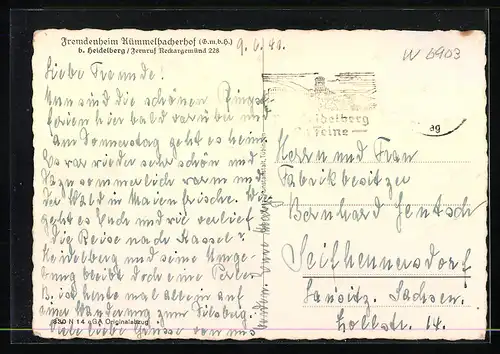 Fremdenheim Kümmelbacherhof (G.m.b.H.)
b. Heidelberg / Fernruf Neckargemünd 228
9.6.41.
W 6903
Liebe Freunde!
Nun sind die schönen Pfingst-
ferien hier bald vorüber und
am Donnerstag geht es heim.
Es war wieder sehr schön und
dazu sommerlich warm und
der Wald in Maienfrische. Wie
geht es Euch und wie verlief
die Reise nach Kassel?
Heidelberg und seine Umge-
bung bleibt doch eine Perle.
B. ist heute mal allein auf
einer Wanderung zum Dilsberg.
Viele liebe Grüsse von uns
Heidelberg
Herrn und Frau
Fabrikbesitzer
Bernhard Jentsch
Seifhennersdorf
Lausitz. Sachsen.
Zollstr. 14.
N 14 Originalabzug